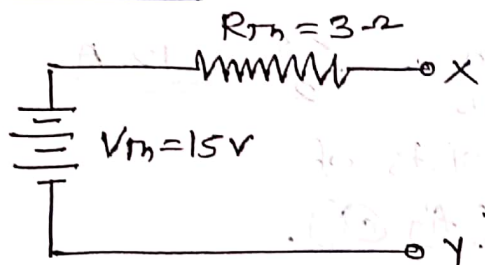 RTh = 3 Ω
X
VTh = 15 V
Y